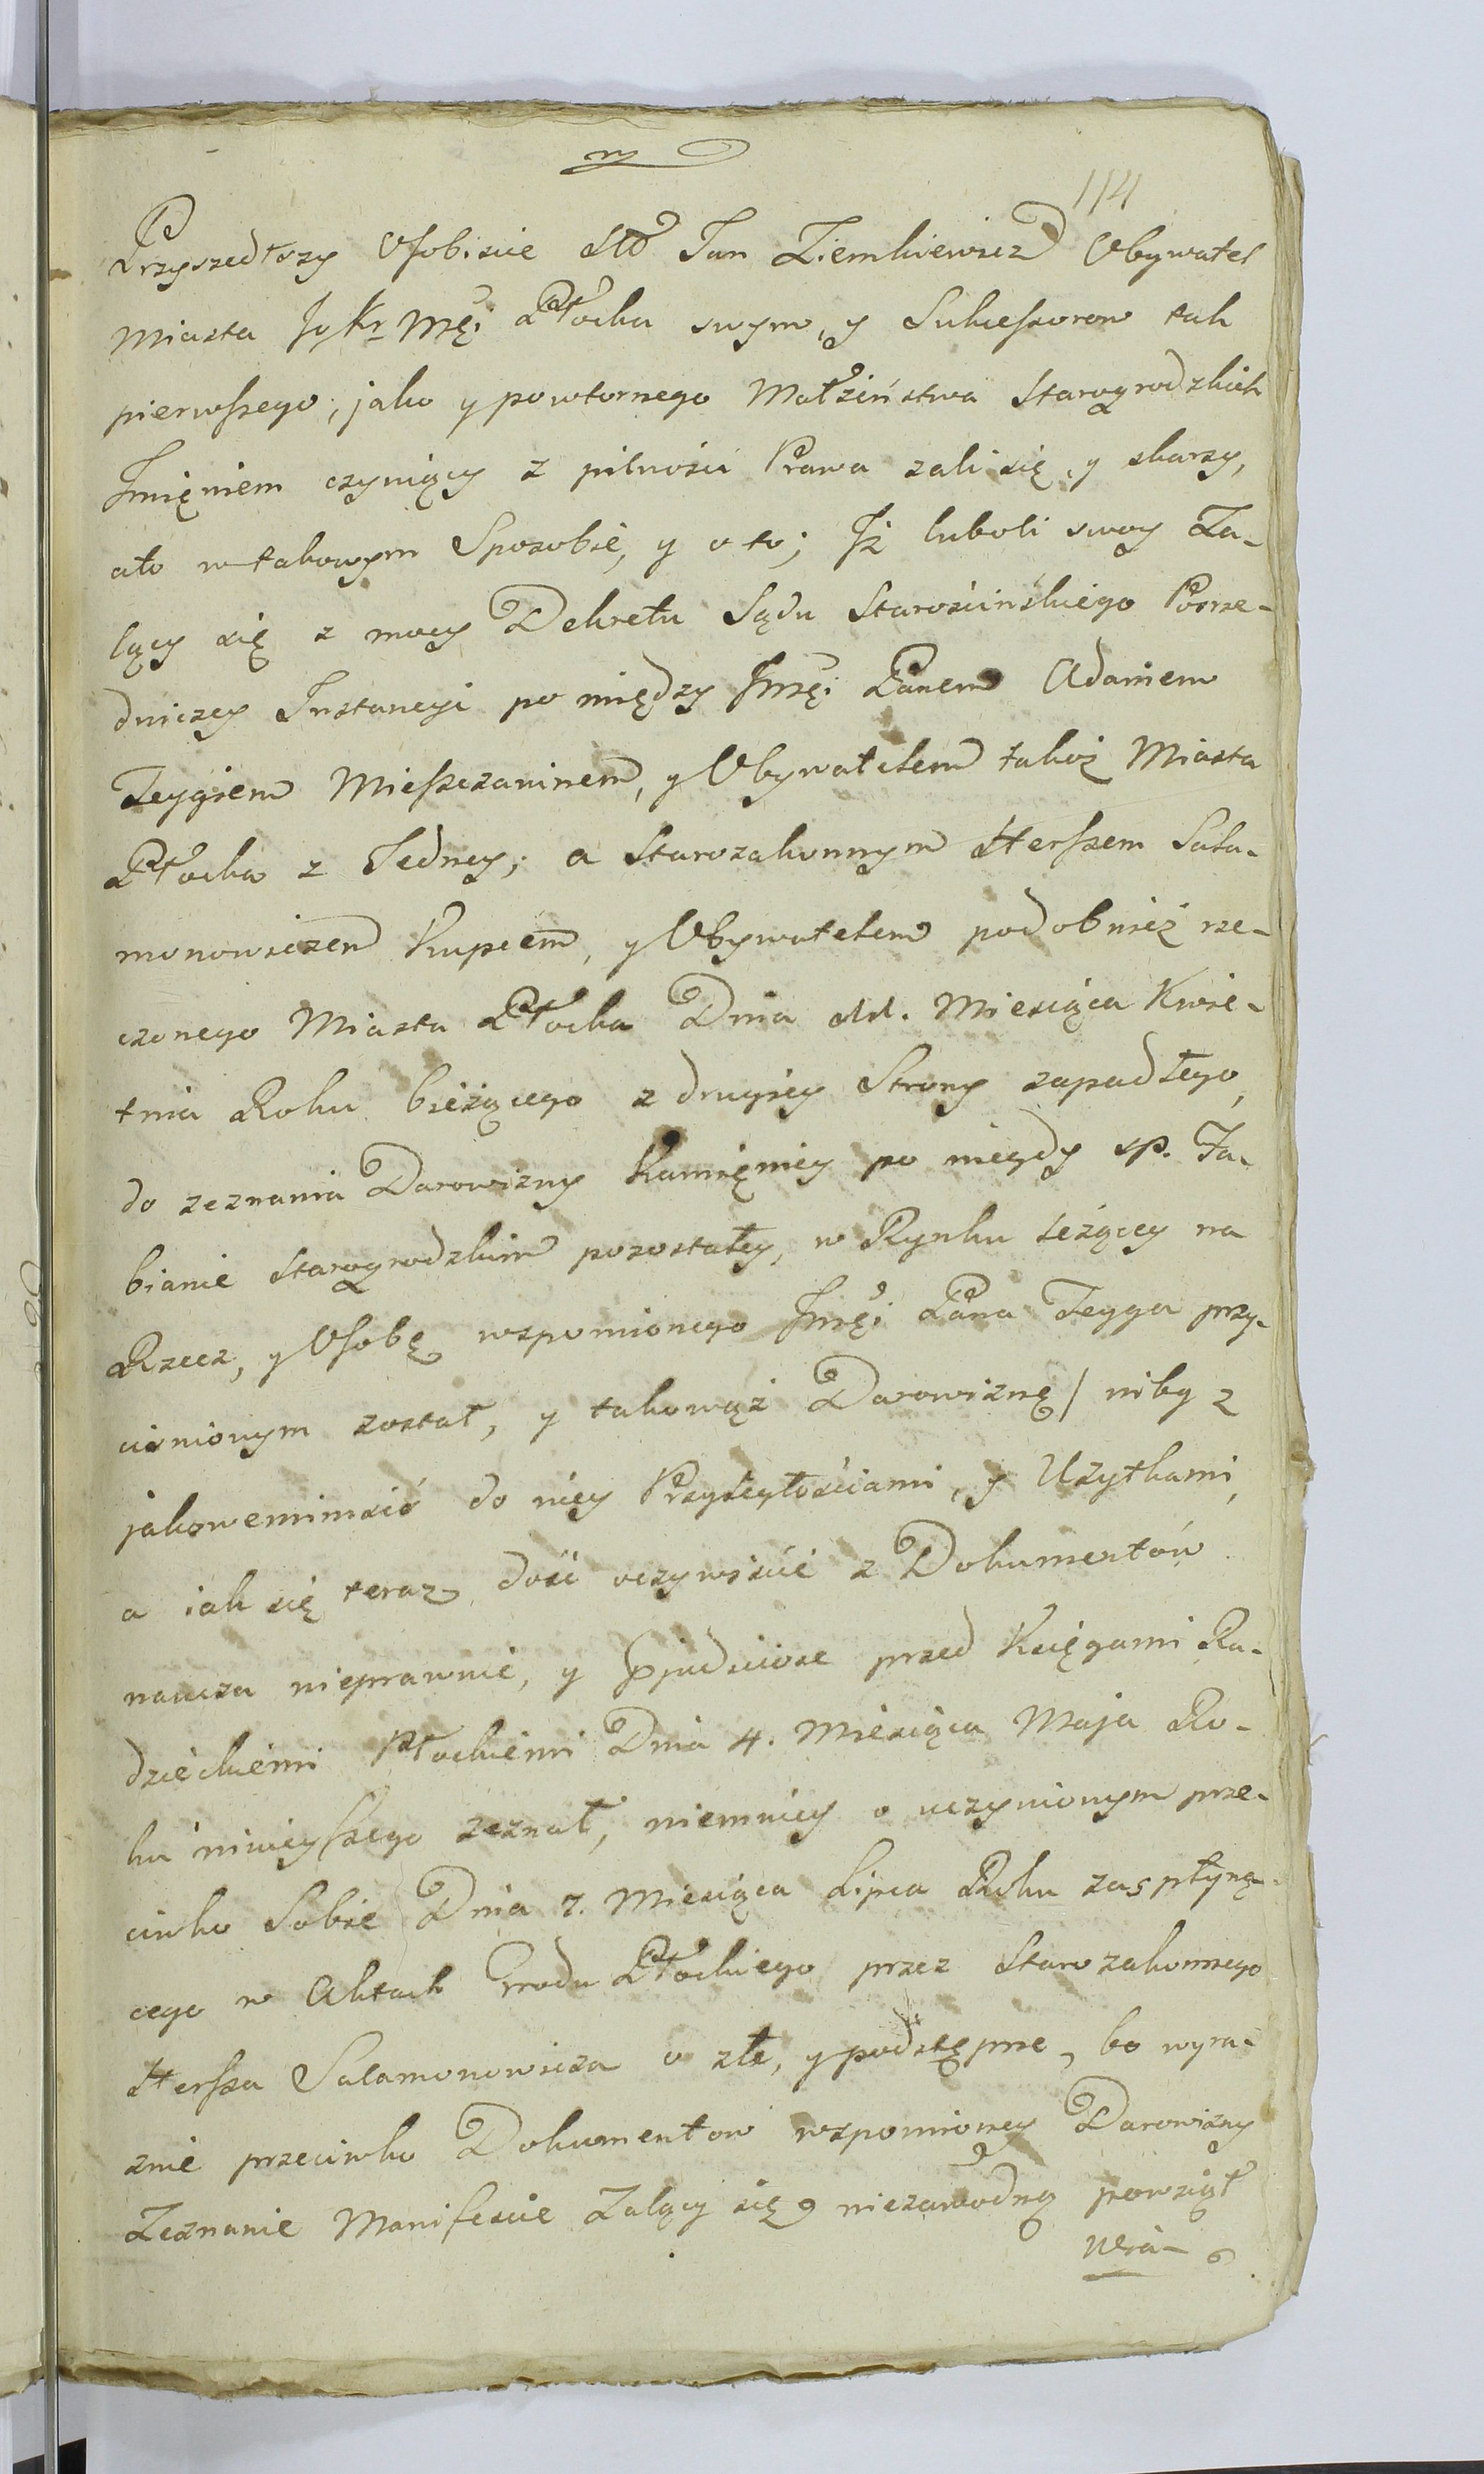 114
Przyszedłszy Osobiscie Sł Jan Ziemkiewicz Obywatel
Miasta Jo Kr Mći Płocka swym, y Sukcessorow tak
pierwszego, jako y powtornego Małżiństwa Starogrodzkich
Jmięniem czyniący z pilności Prawa zali się, y skarzy,
ato w takowym Sposobie, y o to; Jż luboli swoy Za-
lący się z mocy Dekretu Sądu Starościńskiego Posrze-
dniczey Instancyi po między Jmći Panem Adamem
Teygiem Mieszczaninem, y Obywatelem takoż Miasta
Płocka z Jedney; a Starozakonnym Herszem Sala-
monowiczem Kupcem, y Obywatelem podobnież rze-
czonego Miasta Płocka Dnia Miesiąca Kwie-
tnia Roku bieżącego z drugiey Strony zapadłego,
do zeznania Darowizny Kamięnicy po niegdy sp. Fa-
bianie Starogrodzkim pozostałey, w Rynku leżącey na
Rzecz, y Osobę wspomionego Jmći Pana Teyga przy-
ciśnionym został, y takowąż Darowiznę / niby z
jakowemimsić do niey Przyległościami, y Użytkami,
a iak się teraz dość oczywiście z Dokumentów
naucza nieprawnie, y przed Księgami Ra-
dzieckiemi Płockiemi Dnia 4. Miesiąca Maja Ro-
ku ninieyszego zeznał, niemniey o uczynionym prze-
ciwko Sobie Dnia 7. Miesiąca Lipca Roku zaspłynę-
cego w Aktach Grodu Płockiego przez Starozakonnego
Hersza Salamonowicza o złe, y podstępne, bo wyra-
znie przeciwko Dokumentow wspomioney Darowizny
Zeznanie Manifescie Zalący się niezawodną powziął